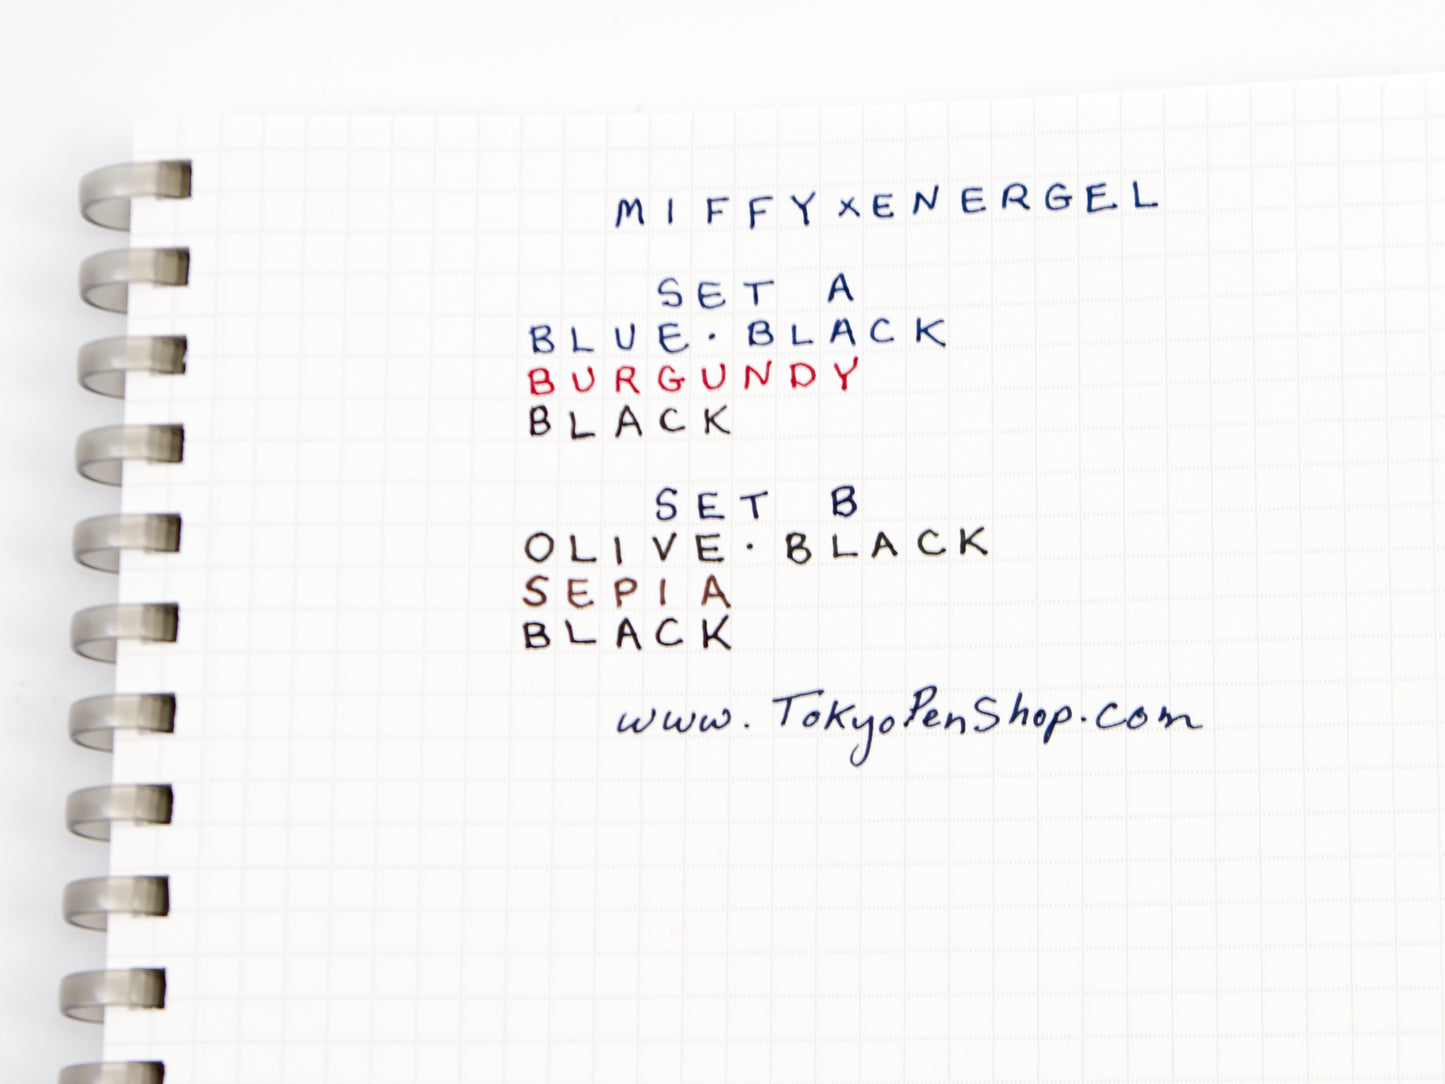 MIFFY×ENERGEL
SET A
BLUE·BLACK
BURGUNDY
BLACK
SET B
OLIVE·BLACK
SEPIA
BLACK
www.TokyoPenShop.com